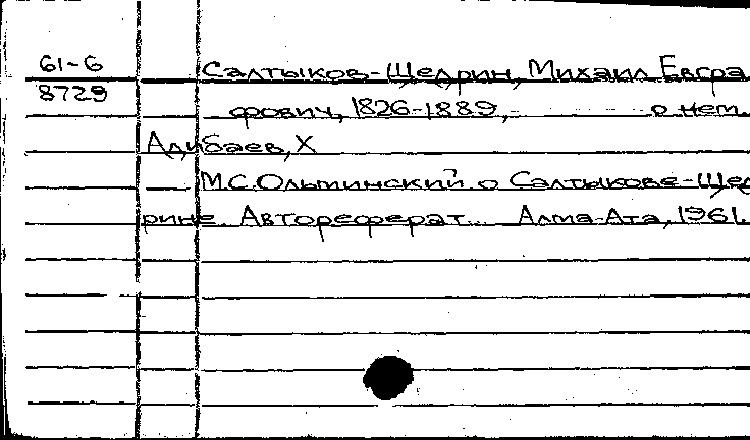 61-6
8729
Салтыков-Щедрин, Михаил Евгра
фович, 1826-1889,- о нем.
Адибаев, Х
М.С.Ольминский о Салтыкове-Щед
рине. Автореферат... Алма-Ата, 1961.